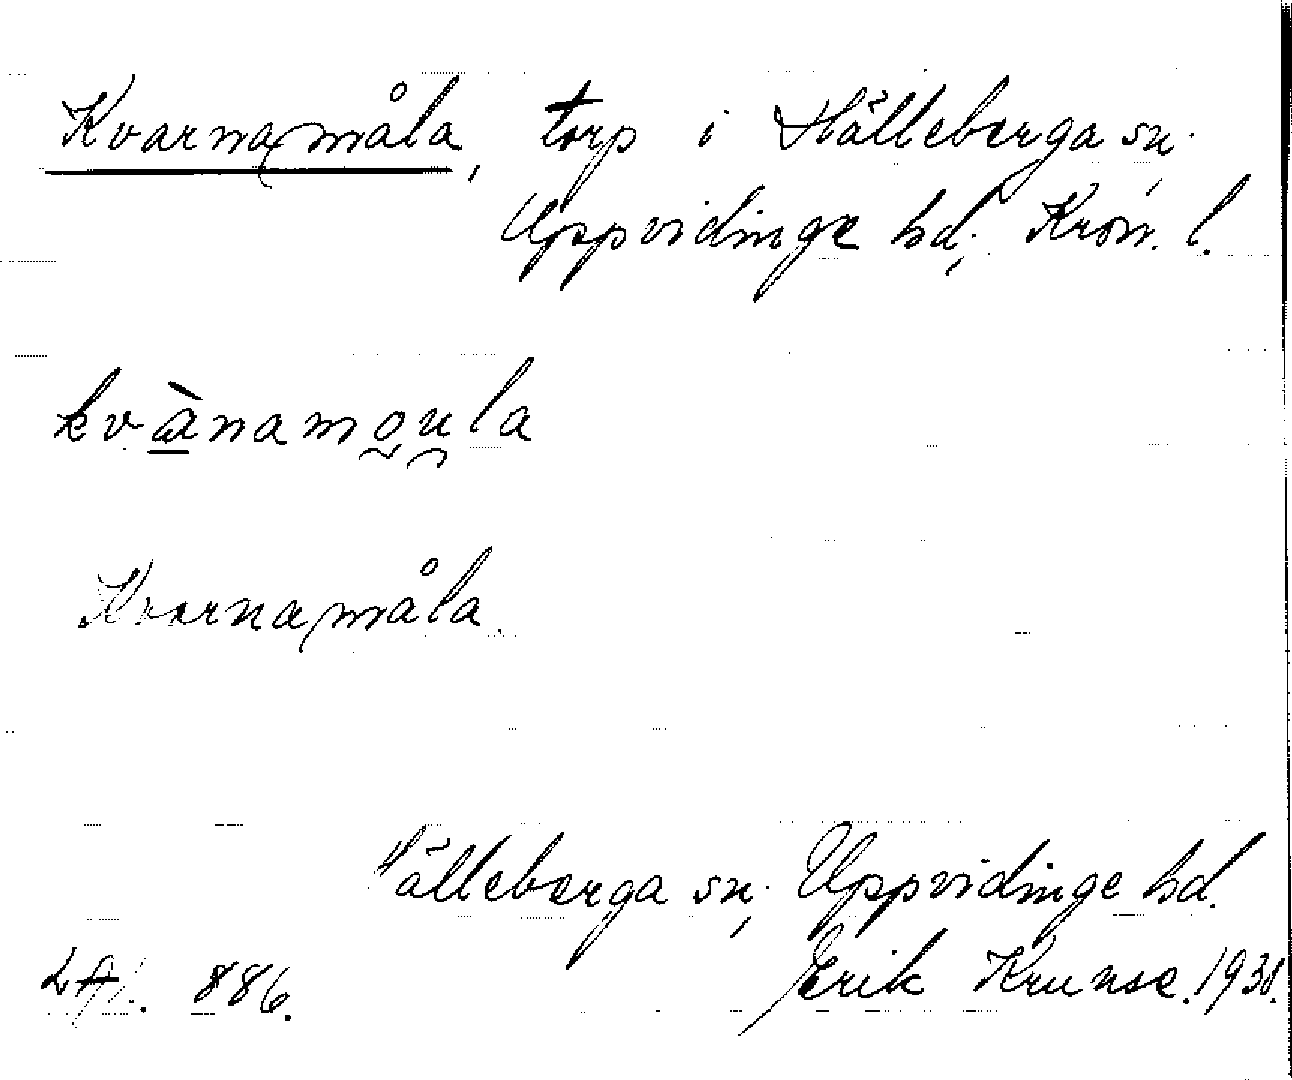 Kvarnamåla, torp i Hälleberga sn.,
Uppvidinge hd., Kron. l.
kvànamo̰u̯la
Kvarnamåla.
Hälleberga sn., Uppvidinge hd.
886. Erik Krunse. 1938.